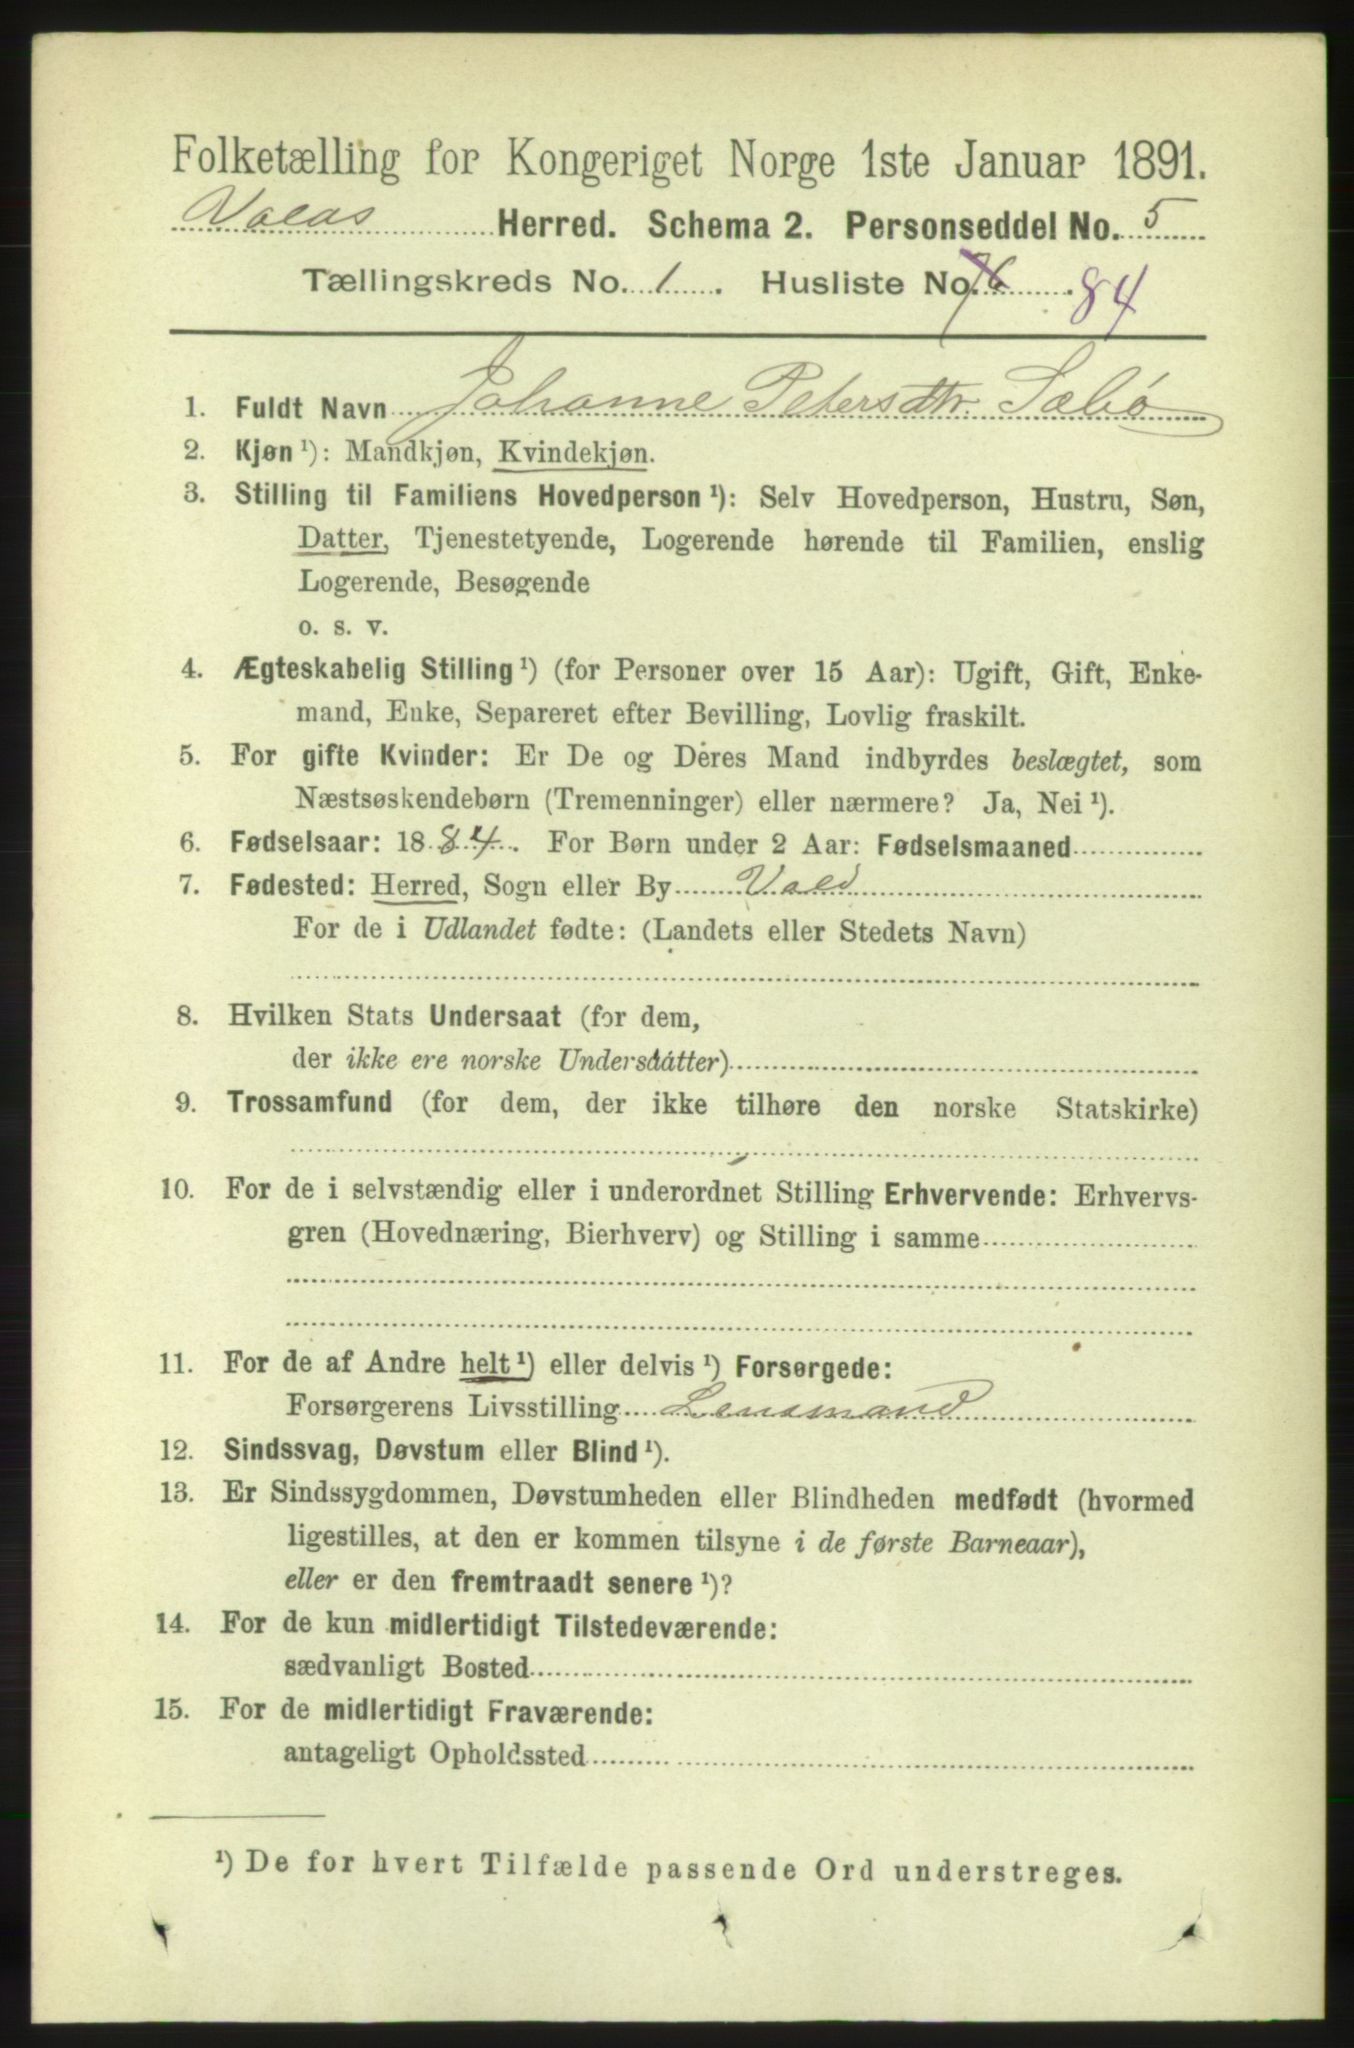 Folketælling for Kongeriget Norge 1ste Januar 1891.
Volds Herred. Schema 2. Personseddel No. 5
Tællingskreds No. 1. Husliste No. 76. 84
1. Fuldt Navn Johanne Petersdtr. Sæbø
2. Kjøn ¹): Mandkjøn, Kvindekjøn.
3. Stilling til Familiens Hovedperson ¹): Selv Hovedperson, Hustru, Søn,
Datter, Tjenestetyende, Logerende hørende til Familien, enslig
Logerende, Besøgende
o. s. v.
4. Ægteskabelig Stilling ¹) (for Personer over 15 Aar): Ugift, Gift, Enke-
mand, Enke, Separeret efter Bevilling, Lovlig fraskilt.
5. For gifte Kvinder: Er De og Deres Mand indbyrdes beslægtet, som
Næstsøskendebørn (Tremenninger) eller nærmere? Ja, Nei ¹).
6. Fødselsaar: 1884. For Børn under 2 Aar: Fødselsmaaned
7. Fødested: Herred, Sogn eller By Vold
For de i Udlandet fødte: (Landets eller Stedets Navn)
8. Hvilken Stats Undersaat (for dem,
der ikke ere norske Undersaatter)
9. Trossamfund (for dem, der ikke tilhøre den norske Statskirke)
10. For de i selvstændig eller i underordnet Stilling Erhvervende: Erhvervs-
gren (Hovednæring, Bierhverv) og Stilling i samme
11. For de af Andre helt ¹) eller delvis ¹) Forsørgede:
Forsørgerens Livsstilling Lensmand
12. Sindssvag, Døvstum eller Blind ¹).
13. Er Sindssygdommen, Døvstumheden eller Blindheden medfødt (hvormed
ligestilles, at den er kommen tilsyne i de første Barneaar),
eller er den fremtraadt senere ¹)?
14. For de kun midlertidigt Tilstedeværende:
sædvanligt Bosted
15. For de midlertidigt Fraværende:
antageligt Opholdssted
¹) De for hvert Tilfælde passende Ord understreges.